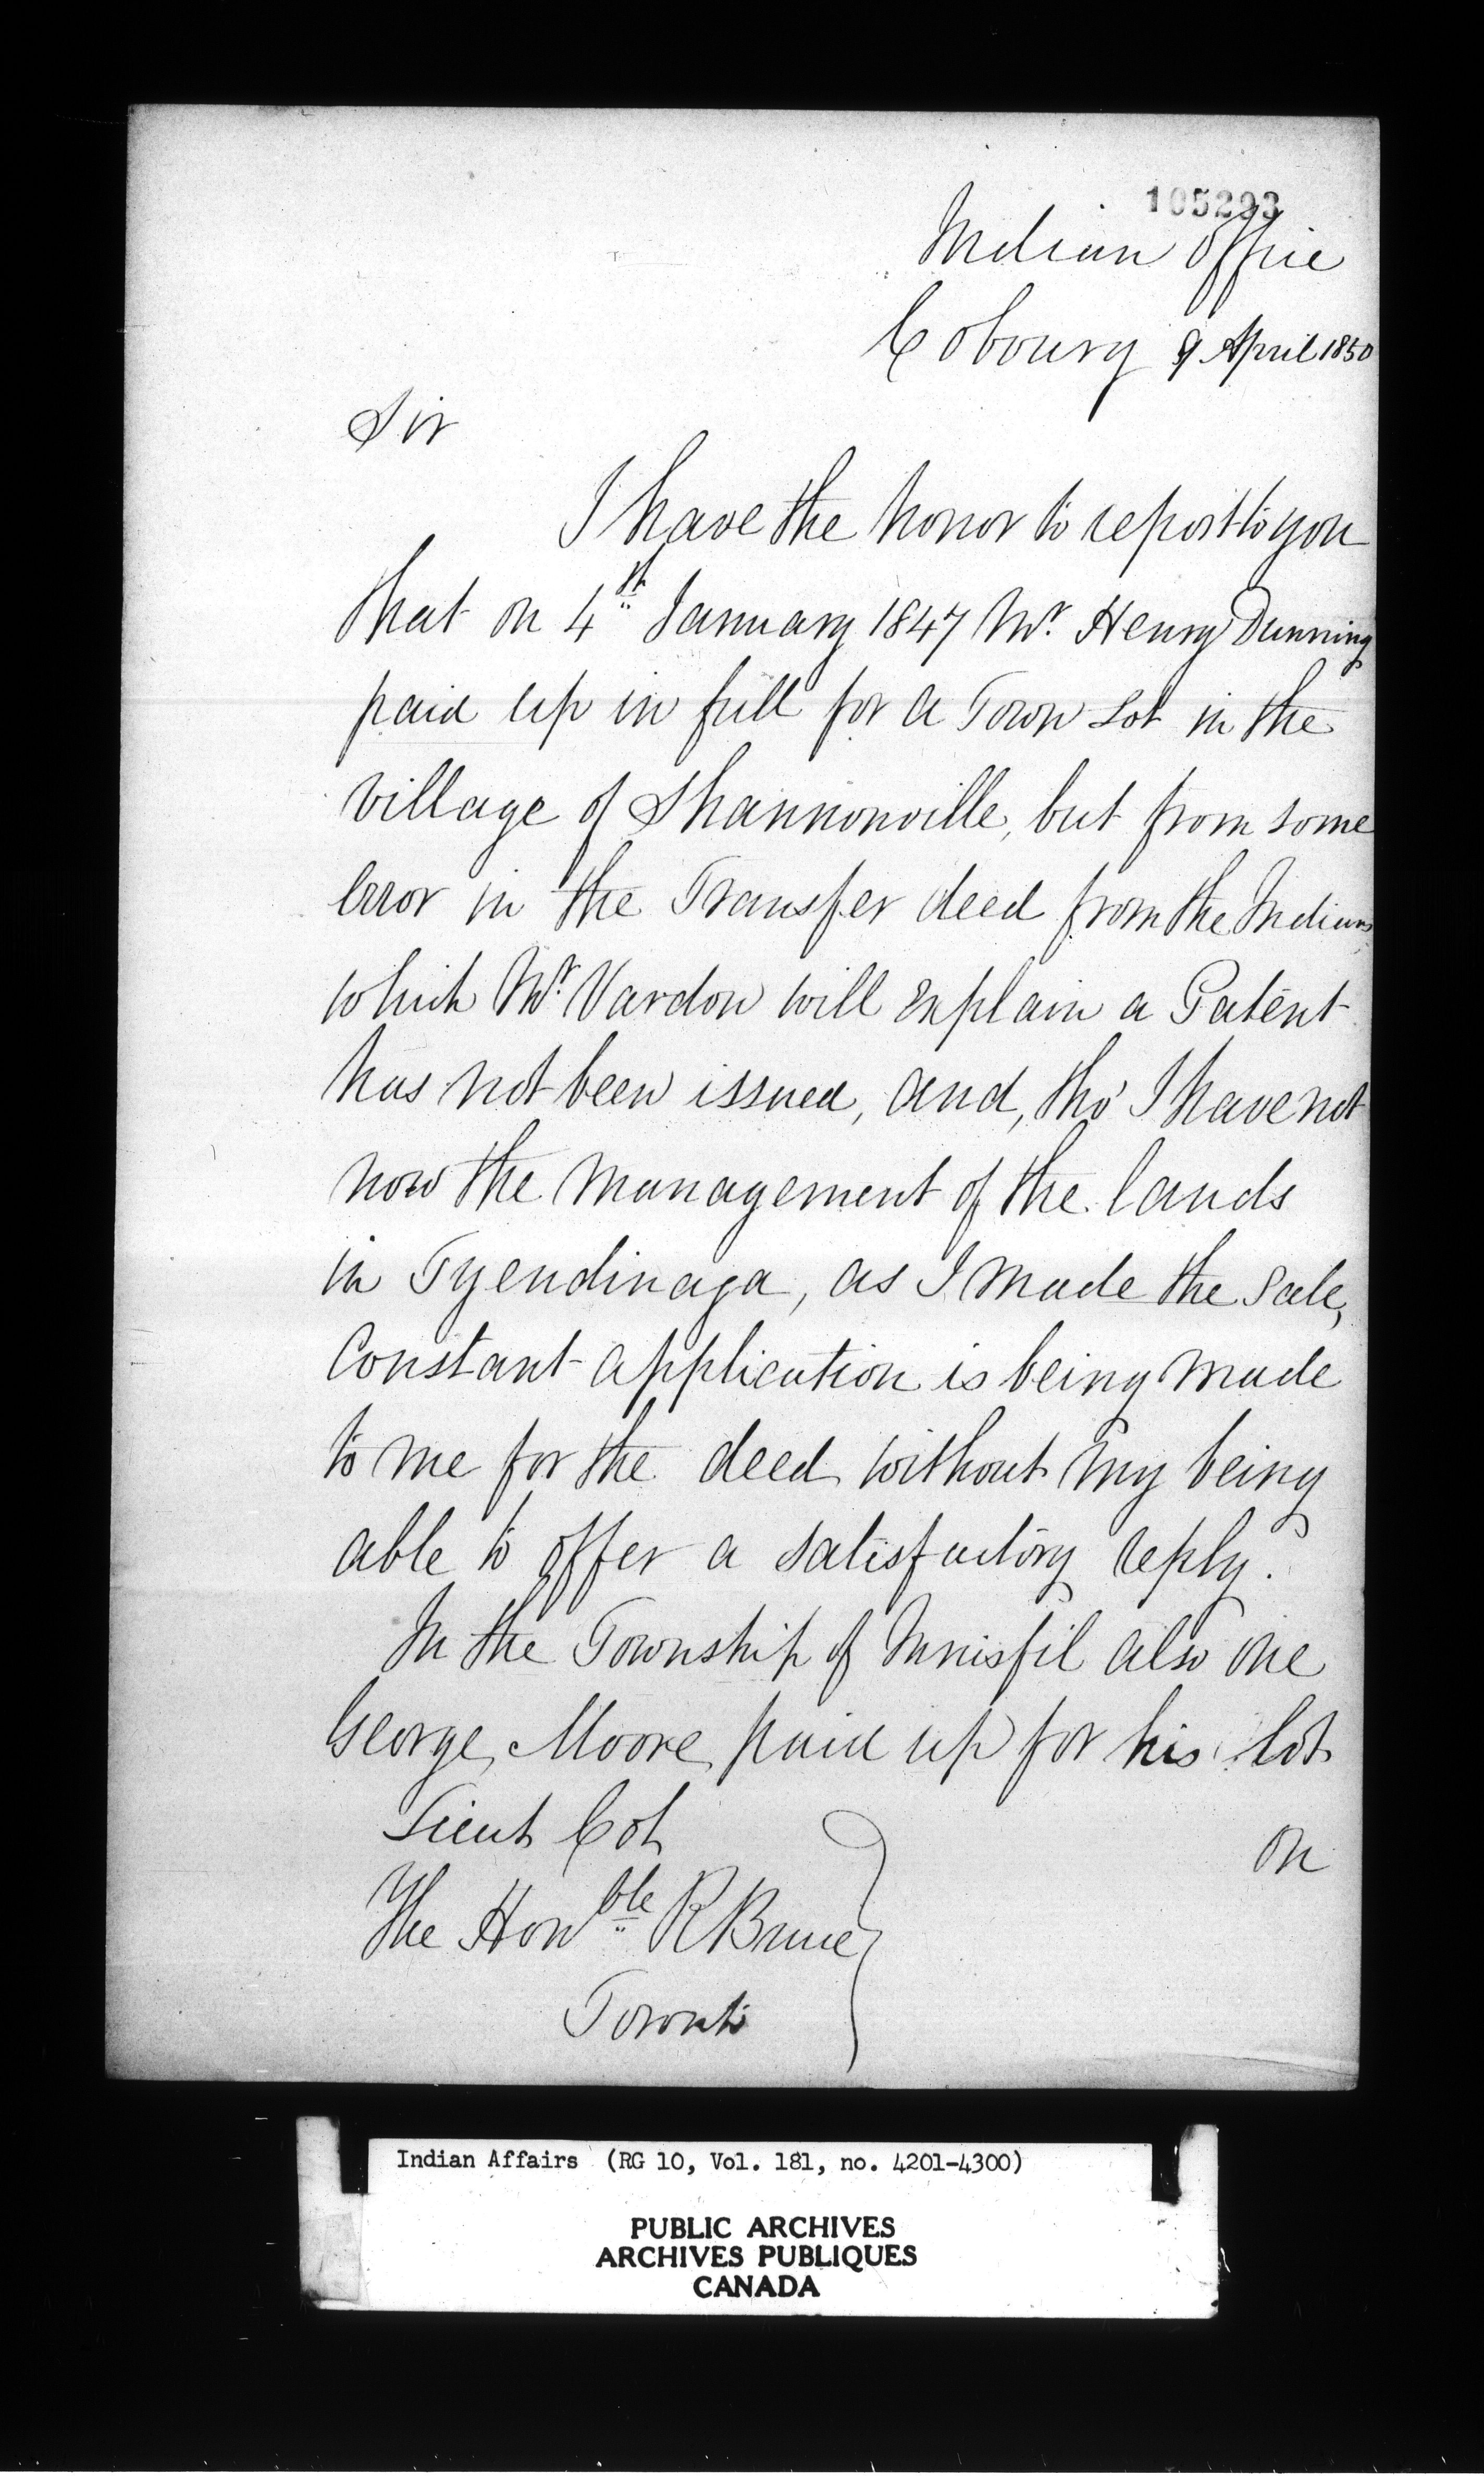 105293
Indian Office
Cobourg 9 April 1850
Sir
I have the honor to report to you
that on 4th January 1847 Mr. Henry Dunning
paid up in full for a Town Lot in the
village of Shannonville, but from some
error in the Transfer deed from the Indians
which Mr. Vardon will explain a Patent
has not been issued, and, tho' I have not
now the management of the lands
in Tyendinaga, as I made the Sale,
Constant application is being made
to me for the deed without my being
able to offer a satisfactory reply.
In the Township of Innisfil also one
George Moore paid up for his lot
on
Lieut Col
The Honble R Bruce
Toronto
Indian Affairs (RG 10, Vol. 181, no. 4201-4300)
PUBLIC ARCHIVES
ARCHIVES PUBLIQUES
CANADA